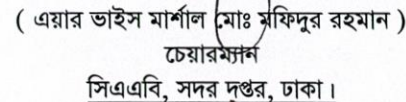 ( এয়ার ভাইস মার্শাল মোঃ মফিদুর রহমান )
চেয়ারম্যান
সিএএবি, সদর দপ্তর, ঢাকা।